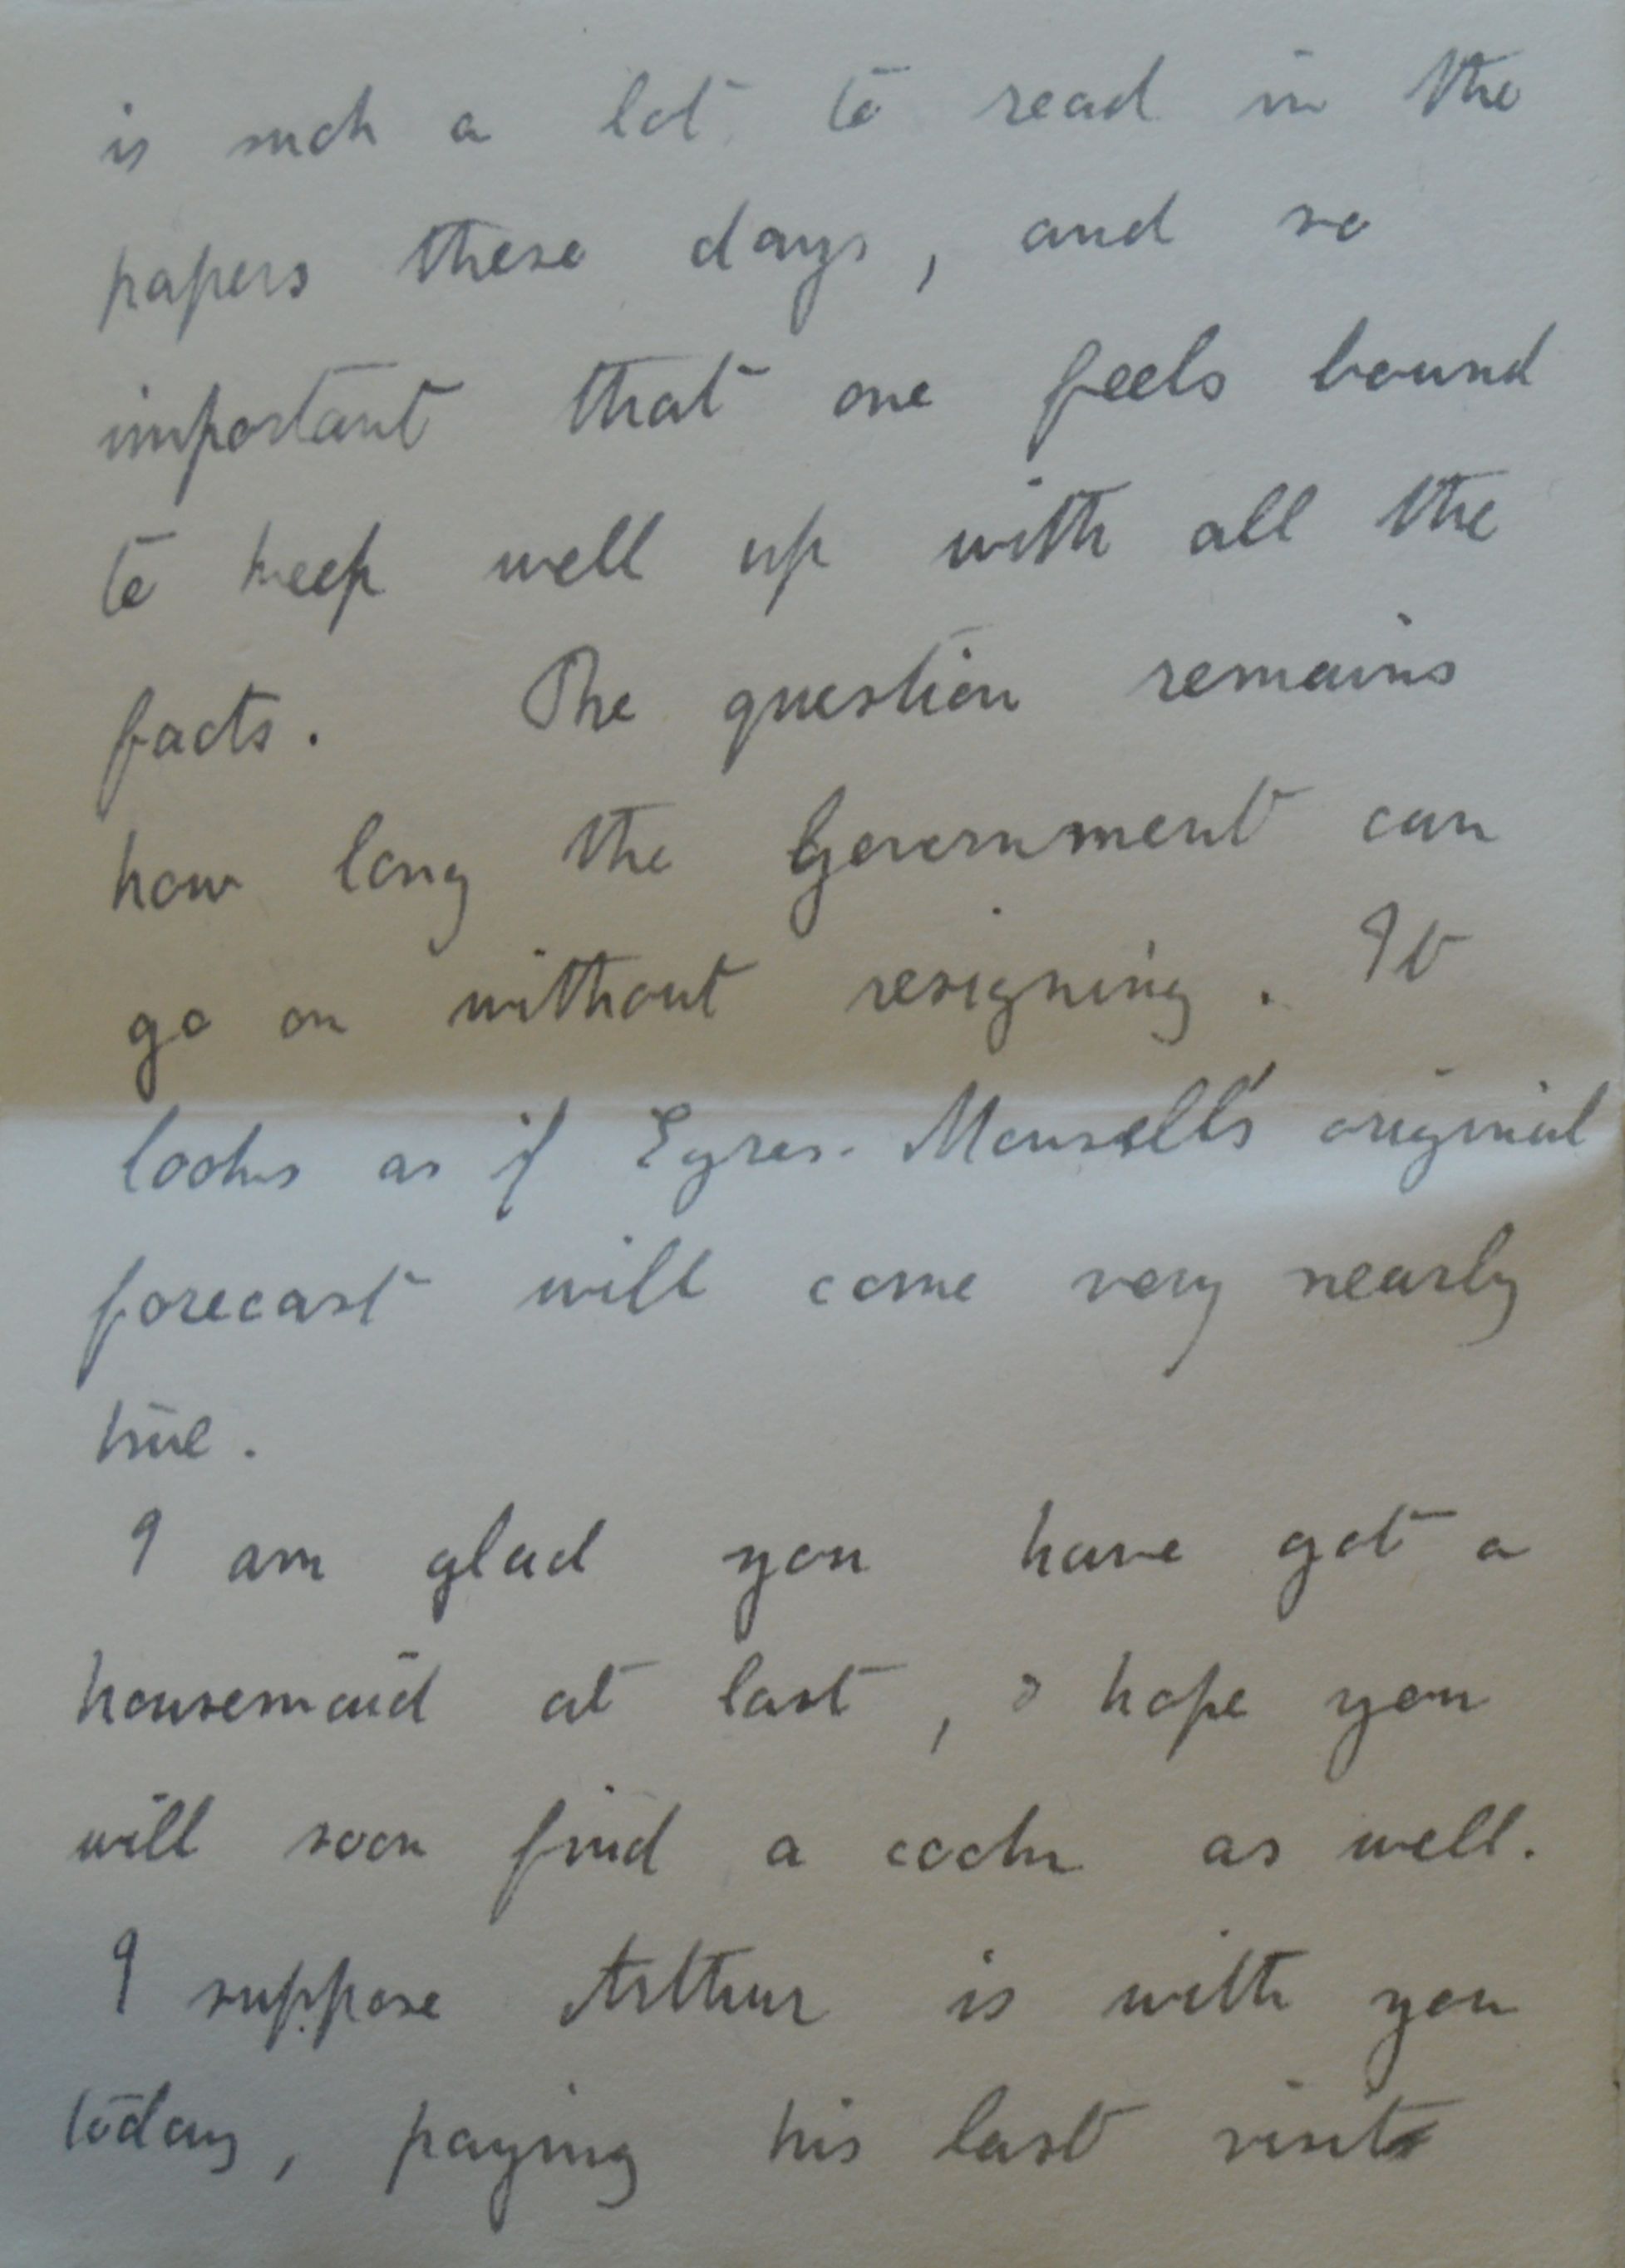 is such a lot to read in the
papers these days, and so
important that one feels bound
to keep well up with all the
facts. The question remains
how long the Government can
go on without resigning. It
looks as if Eyres-Monsell's original
forecast will come very nearly
true.
I am glad you have got a
housemaid at last, & hope you
will soon find a cook as well.
I suppose Arthur is with you
today, paying his last visit